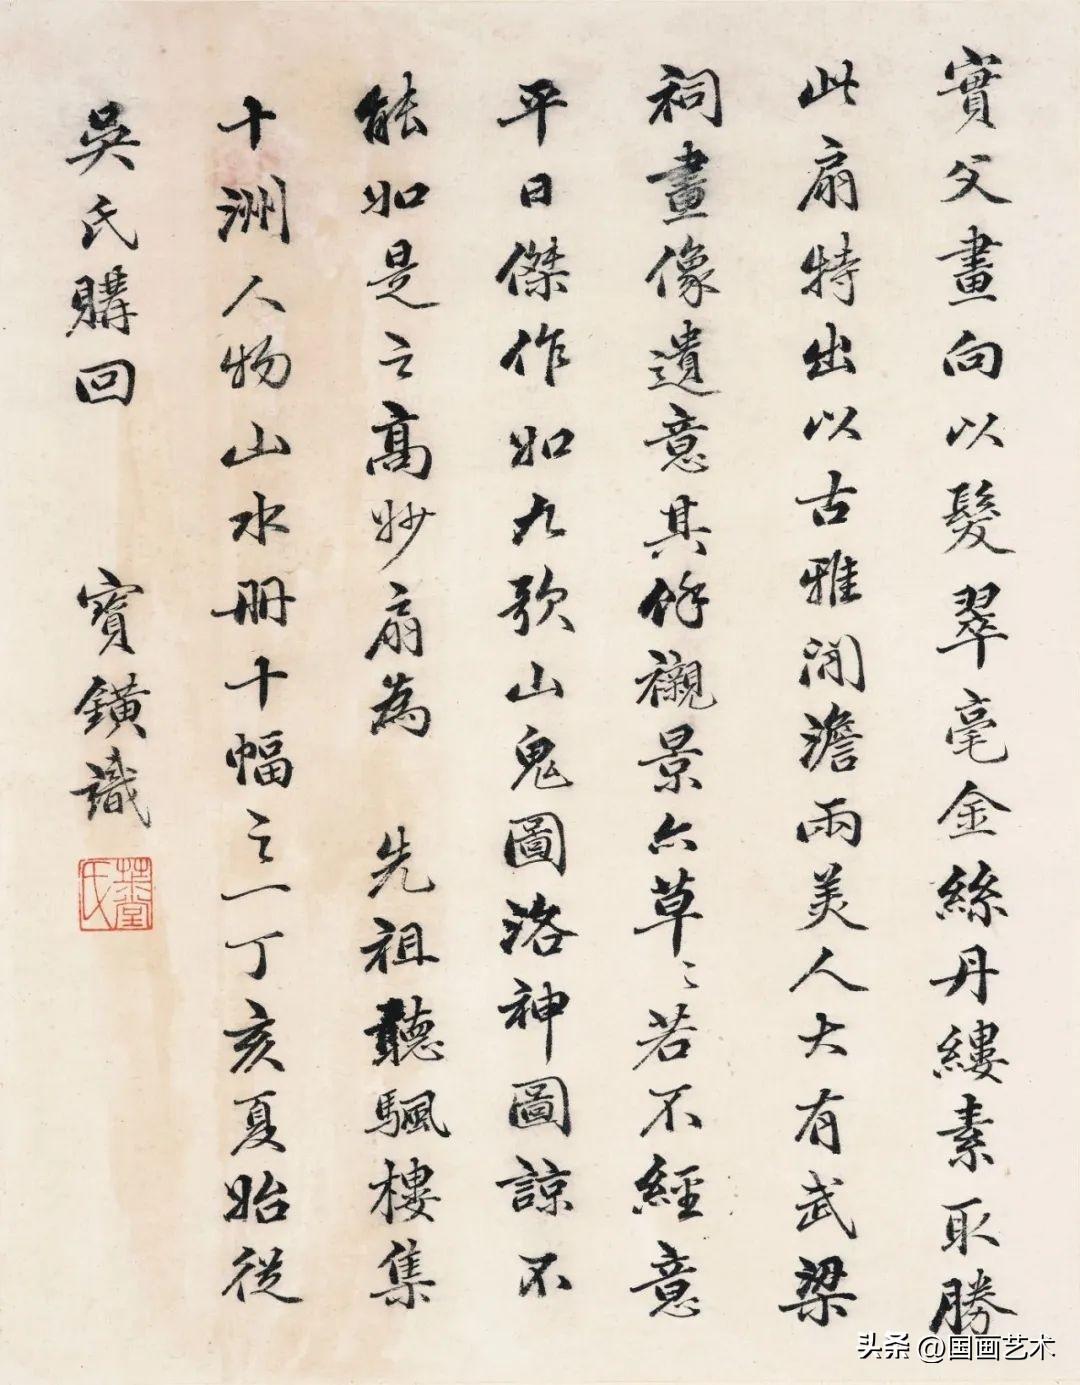 實父畫向以髮翠毫金絲丹縷素取勝
此扇特出以古雅閒澹兩美人大有武梁
祠畫像遺意其餘襯景亦草〻若不經意
平日傑作如九歌山鬼圖洛神圖諒不
能如是之高妙扇為 先祖聽颿樓集
十洲人物山水冊十幅之一丁亥夏始從
吳氏購回 寶鐄識
葉堂氏
头条 @国画艺术